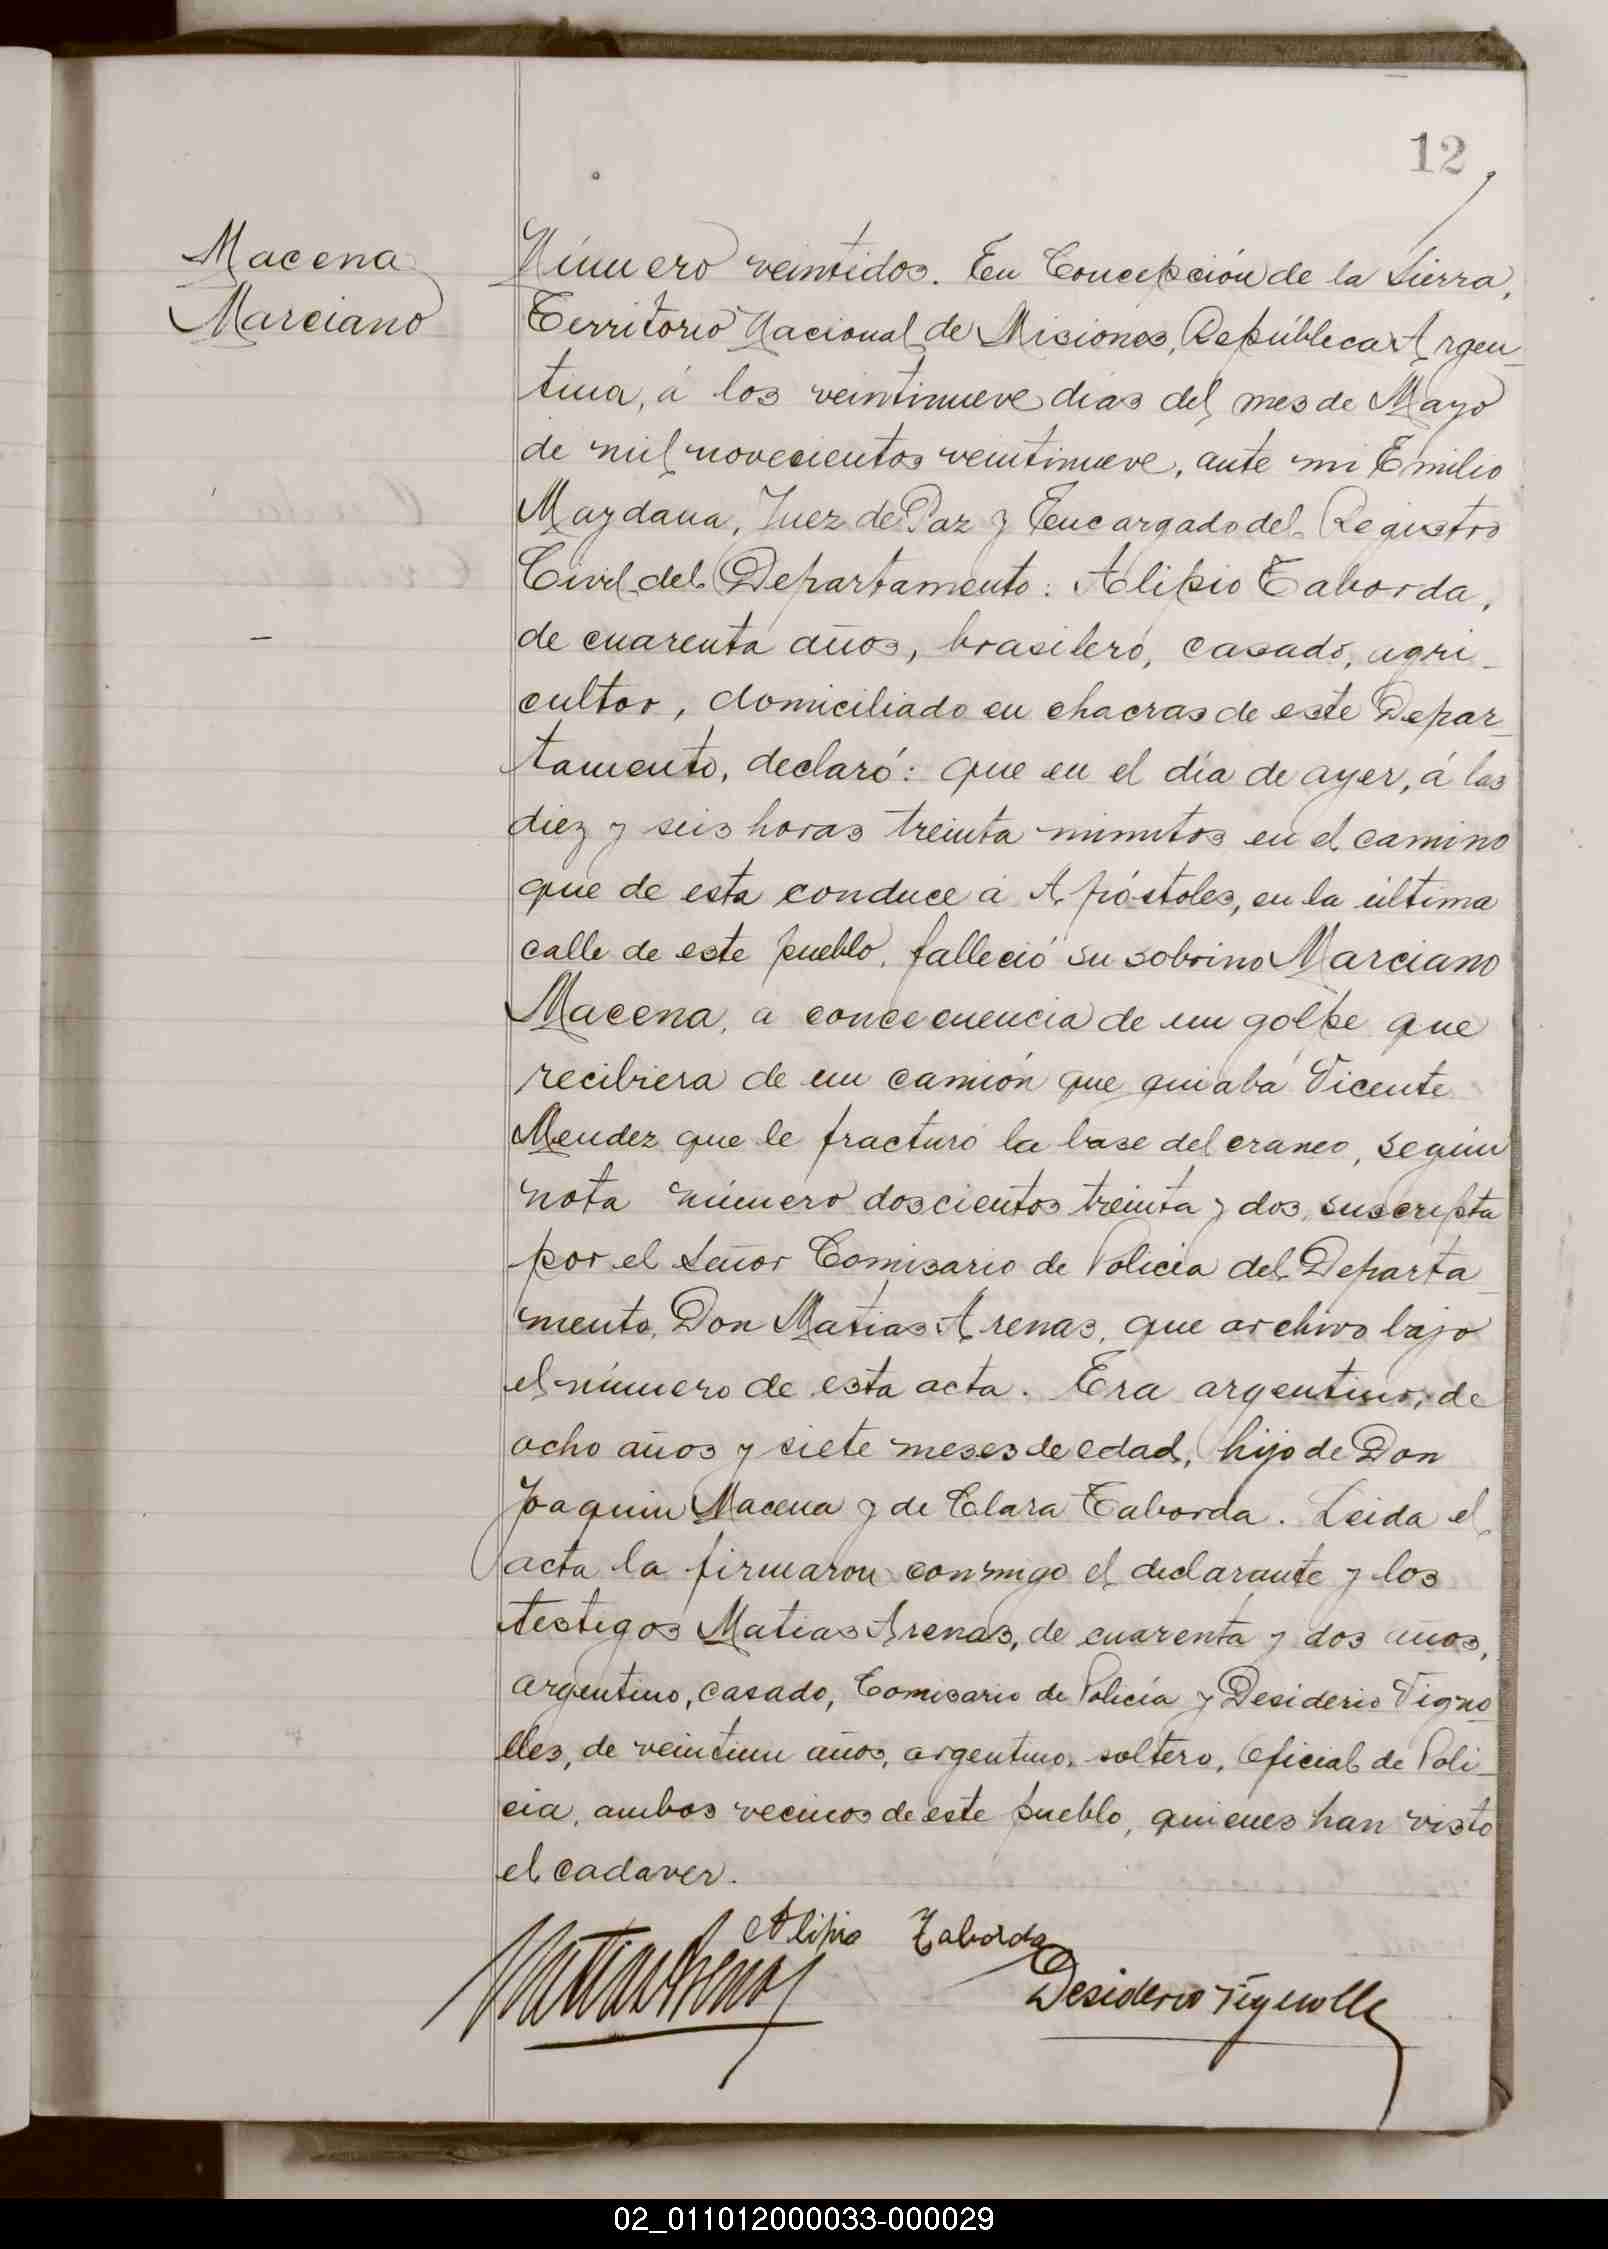 12
Macena
Marciano
Número veintidos. En Concepción de la Sierra,
Territorio Nacional de Misiones, República Argen-
tina, á los veintinueve dias del mes de Mayo
de mil novecientos veintinueve, ante mi Emilio
Maydana, Juez de Paz y Encargado del Registro
Civil del Departamento: Alipio Taborda,
de cuarenta años, brasilero, casado, agri-
cultor, domiciliado en chacras de este Depar-
tamento, declaró: que en el día de ayer, á las
diez y seis horas treinta minutos en el camino
que de esta conduce á Apóstoles, en la última
calle de este pueblo, falleció su sobrino Marciano
Macena, a concecuencia de un golpe que
recibiera de un camión que guiaba Vicente
Mendez que le fracturó la base del craneo, según
nota número doscientos treinta y dos, suscripta
por el Señor Comisario de Policia del Departa-
mento, Don Matias Arenas, que archivo bajo
el número de esta acta. Era argentino, de
ocho años y siete meses de edad, hijo de Don
Joaquin Macena y de Clara Taborda. Leida el
acta la firmaron conmigo el declarante y los
testigos Matias Arenas, de cuarenta y dos años,
argentino, casado, Comisario de Policía y Desiderio Vigno-
lles, de veintiun años, argentino, soltero, Oficial de Poli-
cia, ambos vecinos de este pueblo, quienes han visto
el cadaver.
Alipio Taborda
Matias Arenas
Desiderio Vignolles
02_011012000033-000029